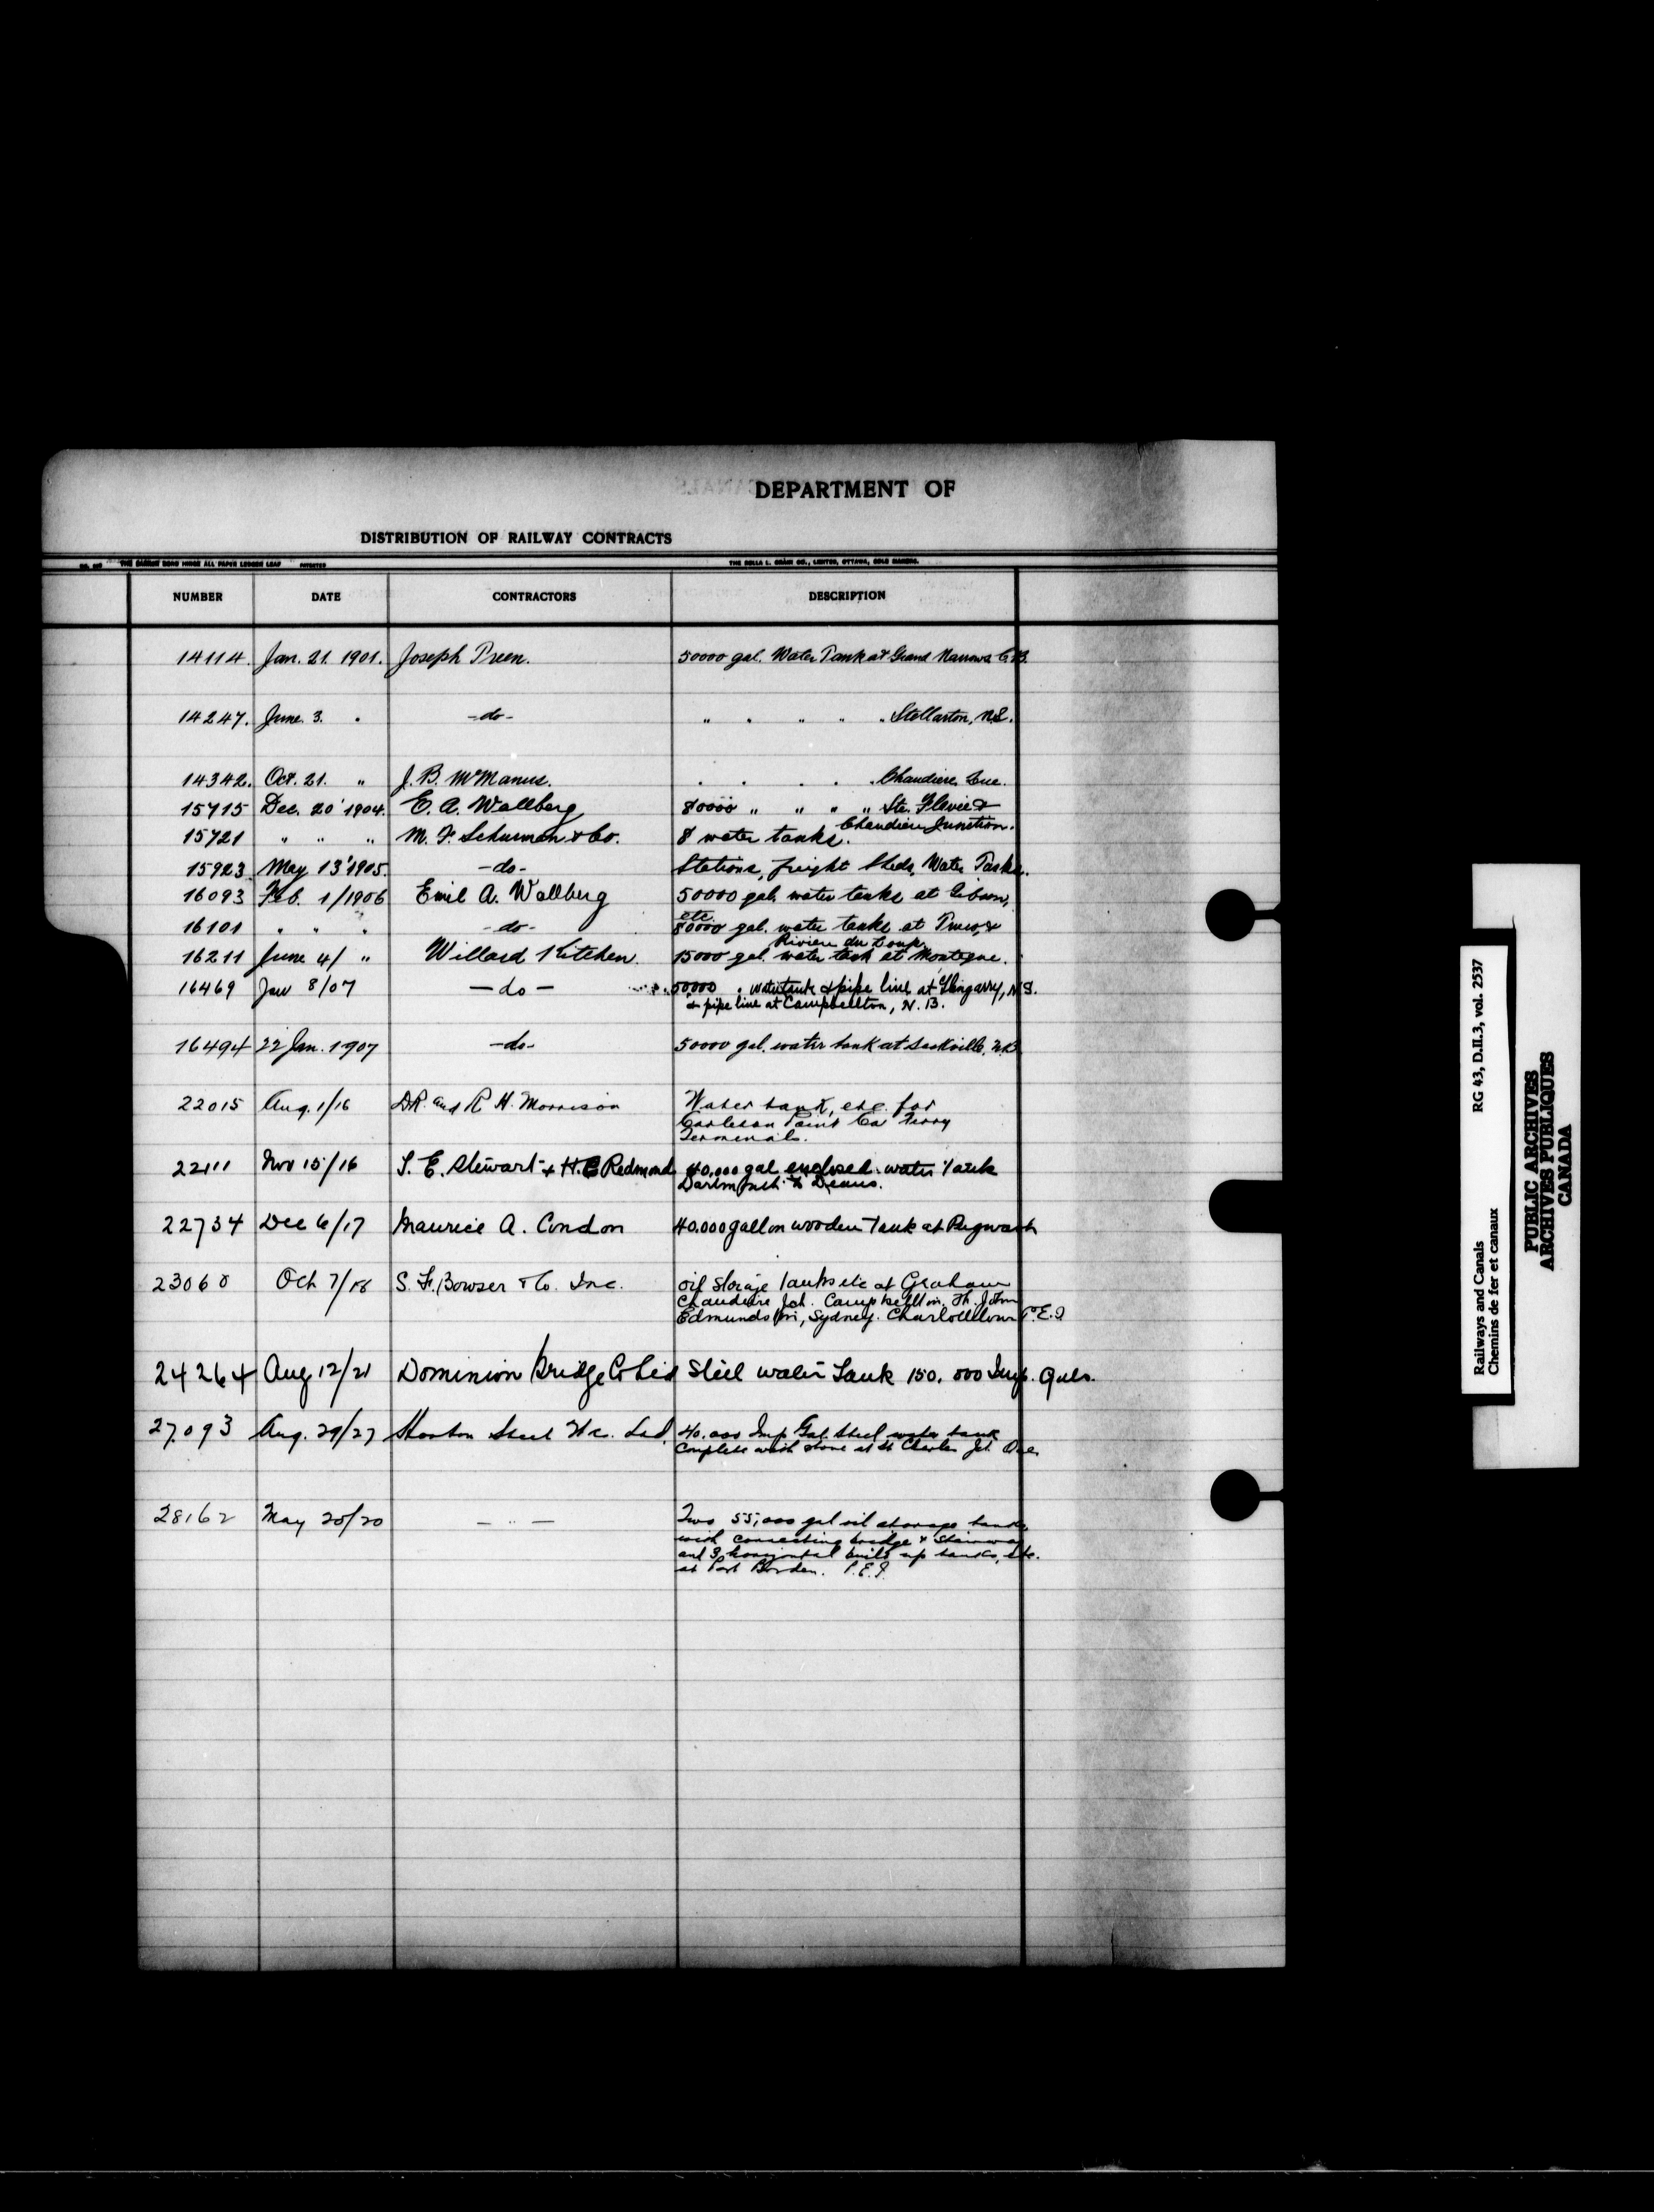 DEPARTMENT OF
DISTRIBUTION OF RAILWAY CONTRACTS
NUMBER DATE CONTRACTORS DESCRIPTION
14114. Jan. 21. 1901. Joseph Preen. 50000 gal. Water Tank at Grand Narrows C.B.
14247. June. 3. " -do- " " " " " Stellarton, N.S.
14342. Oct. 21. " J. B. McManus. " " " " " Chaudiere, Que.
15715 Dec. 20' 1904. E. A. Wallberg 80000 " " " " Ste. Flavie &
Chaudiere Junction.
15721 " " " M. F. Schurman & Co. 8 water tanks.
15923 May 13' 1905. -do- Stations, freight sheds, Water Tanks.
16093 Feb. 1/1906 Emil A. Wallberg 50000 gal. water tanks at Gibson,
etc.
16101 " " " -do- 80000 gal. water tanks at Truro, &
Riviere du Loup.
16211 June 4/ " Willard Kitchen. 15000 gal. water tank at Montague.
16469 Jan 8/07 -do- 50000 " water tank & pipe line at Glengarry, N.S.
& pipe line at Campbellton, N.B.
16494 22 Jan. 1907 -do- 50000 gal. water tank at Sackville, N.B.
22015 Aug. 1/16 D.R. and R H. Morrison Water tank, etc. for
Carleton Point Car Ferry
Terminals.
22111 Nov 15/16 S. E. Stewart & H. E Redmond 40,000 gal enclosed water tank
Dartmouth to Deans.
22734 Dec 6/17 Maurice A. Condon 40.000 gallon wooden Tank at Pugwash
23060 Oct 7/18 S. F. Bowser & Co. Inc. Oil storage tanks etc at Graham
Chaudiere Jct. Campbellton, St. John
Edmundston, Sydney. Charlottetown P.E.I
24264 Aug 12/21 Dominion Bridge Co Ltd Steel water Tank 150.000 Imp. Gals.
27093 Aug. 29/27 Horton Steel Wks. Ltd, 40.000 Imp Gal. Steel water tank
complete work done at St Charles Jct. Que
28162 May 20/20 — " — Two 55,000 gal oil storage tanks
with connecting bridge & Stairway
and 3 horizontal built up tanks, etc.
at Port Borden. P.E.I.
Railways and Canals RG 43, D.II.3, vol. 2537
Chemins de fer et canaux
PUBLIC ARCHIVES
ARCHIVES PUBLIQUES
CANADA